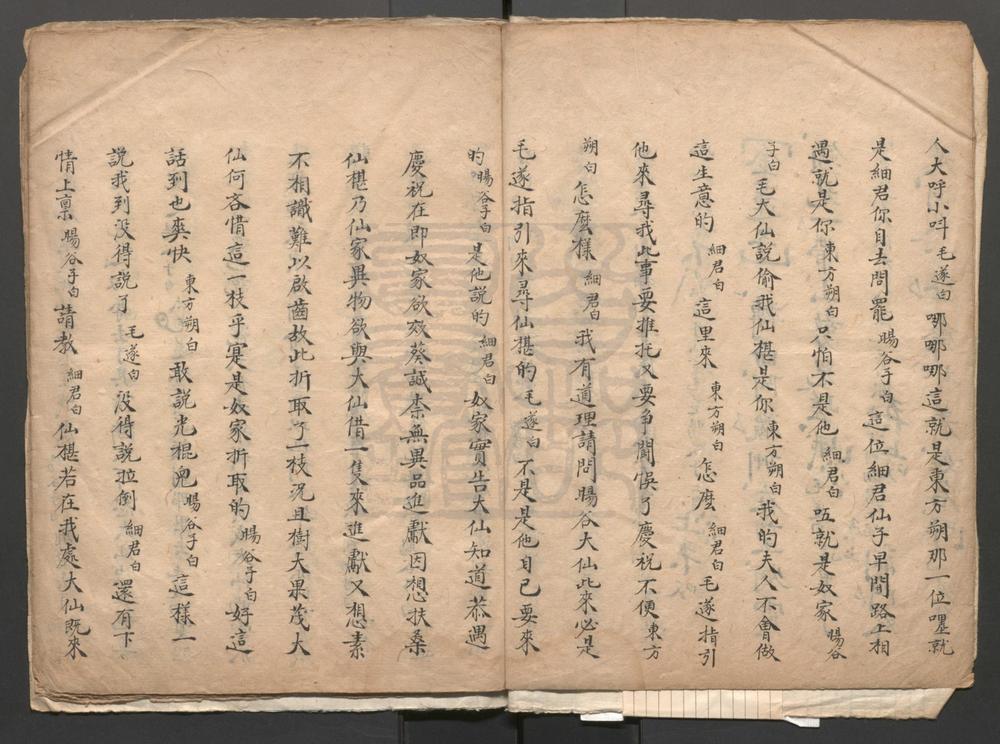 人大呼小呌毛遂白哪哪哪這就是東方朔那一位嚜就
是細君你自去問罷暘谷子白這位細君仙子早間路上相
遇就是你東方朔白只怕不是他細君白咓就是奴家暘谷
子白毛大仙説偷我仙椹是你東方朔白我的夫人不會做
這生意的細君白這里來東方朔白怎麽細君白毛遂指引
他來尋我此事要推托又要争閙悞了慶祝不便東方
朔白怎麽樣細君白我有道理請問暘谷大仙此來必是
毛遂指引來尋仙椹的毛遂白不是是他自已要來
旳暘谷子白是他説的細君白奴家實告大仙知道恭遇
慶祝在即奴家欲效葵誠柰無異品進獻因想扶桑
仙椹乃仙家異物欲與大仙借一隻來進獻又想素
不相識難以啟齒故此折取了一枝况且樹大果茂大
仙何吝惜這一枝乎寔是奴家折取的暘谷子白好這
話到也爽快東方朔白敢説光棍兒暘谷子白這樣一
説我到没得説了毛遂白没得説拉倒細君白還有下
情上禀暘谷子白請教細君白仙椹若在我處大仙既來